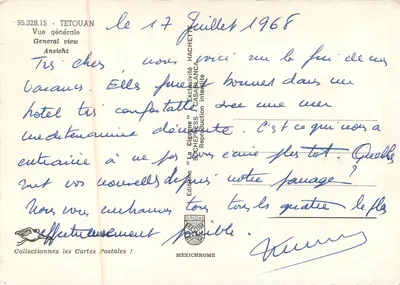 95.328.15 - TETOUAN
Vue générale
General view
Ansicht
le 17 Juillet 1968
Très chers, nous voici sur la fin de nos
vacances. Elles furent bonnes dans un
hotel très confortable avec une mer
méditerranée démontée. C'est ce qui nous a
entrainé à ne pas vous écrire plus tot. Quelles
sont vos nouvelles depuis notre passage ?
Nous vous embrassons tous tous les quatre le plus
affectueusement possible.
Editions "La Cigogne" Exclusivité HACHETTE
HACHEPRESS CASABLANCA
Reproduction interdite
Collectionnez les Cartes Postales !
MEXICHROME